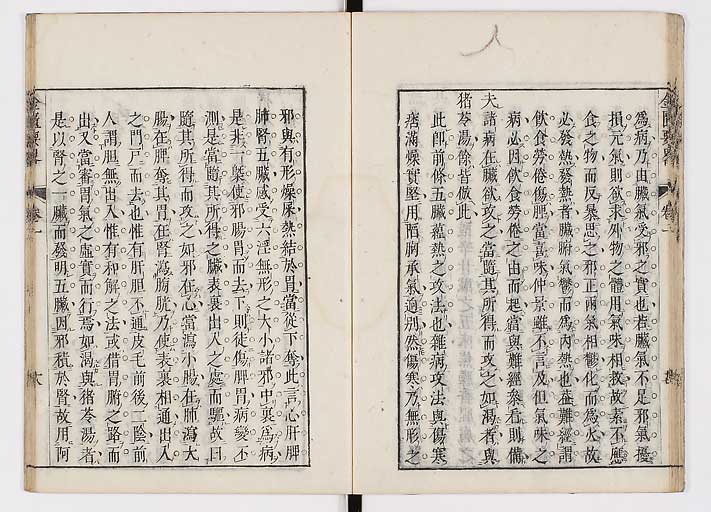 為病乃由臟氣受邪之實也若臟氣不足邪氣擾
損元氣則欲求外物之體用氣味相救故素不應
食之物而反暴思之邪正兩氣相鬱化而為火故
必發熱發熱者臟腑氣鬱而為內熱也蓋難經謂
飲食勞倦傷脾當喜味仲景雖不言及但氣味之
病必因飲食勞倦之由而起當與難經參看則備
夫諸病在臟欲攻之當隨其所得而攻之如渴者與
猪苓湯餘皆倣此
此即前條五臟蘊熱之攻法也雜病攻法與傷寒
痞滿燥實堅用陷胸承氣逈別然傷寒乃無形之
邪與有形燥屎熱結於胃當從下奪此言心肝脾
肺腎五臟感受六淫無形之大小諸邪中裏為病
是非一槩使邪腸胃而去下則徒傷脾胃病變不
測是當隨其所得之臟表裏出入之處而驅故曰
隨其所得而攻之如邪在心當瀉小腸在肺瀉大
腸在脾奪其胃在腎瀉膀胱乃使表裏相通出入
之門戸而去也惟有肝胆不通皮毛前後二陰前
人謂胆無出入惟有和解之法或借胃腑之路而
出又當審胃氣之虛實而行焉如渴與猪苓湯者
是以腎之一臟而發明五臟因邪積於腎故用阿